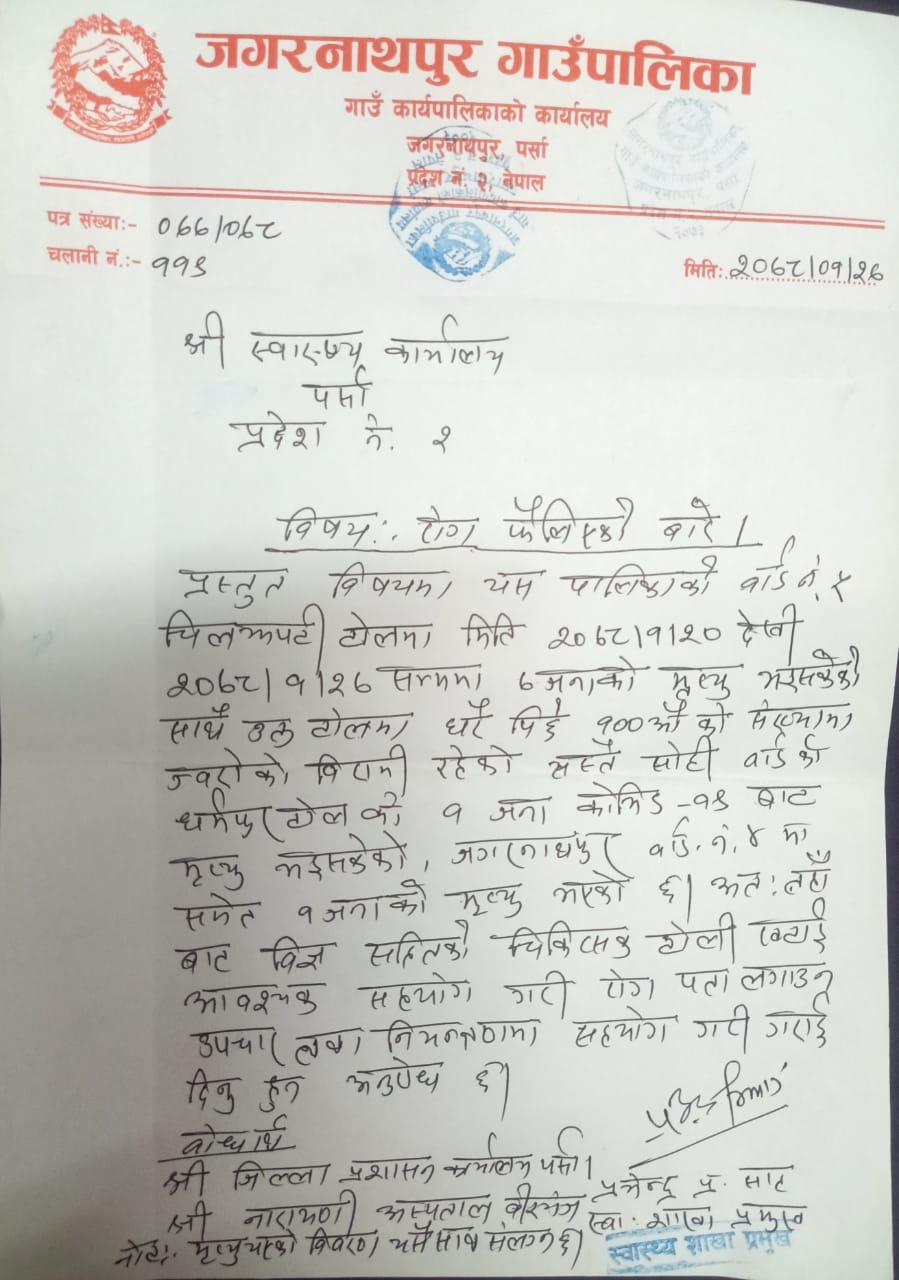 जगरनाथपुर गाउँपालिका
गाउँ कार्यपालिकाको कार्यालय
जगरनाथपुर, पर्सा
प्रदेश नं. २, नेपाल
पत्र संख्याः- ०७७/०७८
चलानी नं.:- ११९
मितिः २०७८/०१/२६
श्री स्वास्थ्य कार्यालय
पर्सा
प्रदेश नं. २
विषय: रोग फैलिएको बारे।
प्रस्तुत विषयमा यस पालिकाको वार्ड नं. ५
चिलझपटी टोलमा मिति २०७८/१/२० देखी
२०७८/१/२६ सम्ममा ६ जनाको मृत्यु भइसकेको
साथै उक्त टोलमा घरै पिछे १०० औ को संख्यामा
ज्वरोको बिरामी रहेको यस्तै सोही वार्डको
धर्मपुर टोलको १ जना कोभिड -१९ बाट
मृत्यु भइसकेको, जगरनाथपुर वार्ड नं. ४ मा
समेत १ जनाको मृत्यु भएको छ। अतः तहाँ
बाट विज्ञ सहितको चिकित्सक टोली खटाई
आवश्यक सहयोग गरी रोग पत्ता लगाउन
उपचार तथा नियन्त्रणमा सहयोग गरी गराई
दिनु हुन अनुरोध छ।
बोधार्थ
श्री जिल्ला प्रशासन कार्यालय पर्सा।
श्री नारायणी अस्पताल वीरगंज
प्र. साह
स्वा. शाखा प्रमुख
नोट:- मृत्यु भएको विवरण यसै साथ संलग्न छ।
स्वास्थ्य शाखा प्रमुख